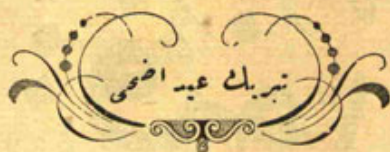 تبريك عيد اضحى